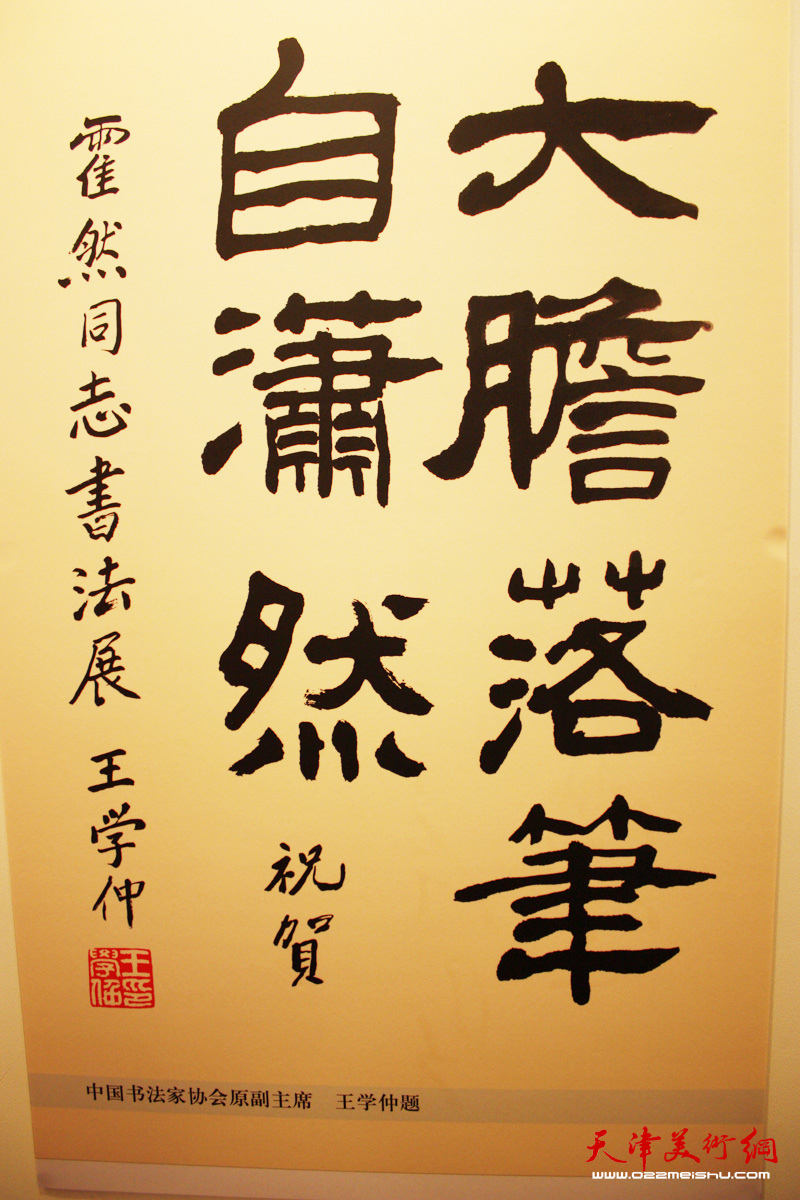 大膽落筆
自瀟然
祝賀
霍然同志書法展 王学仲
王學仲印
中国书法家协会原副主席 王学仲题
天津美術網
www.022meishu.com